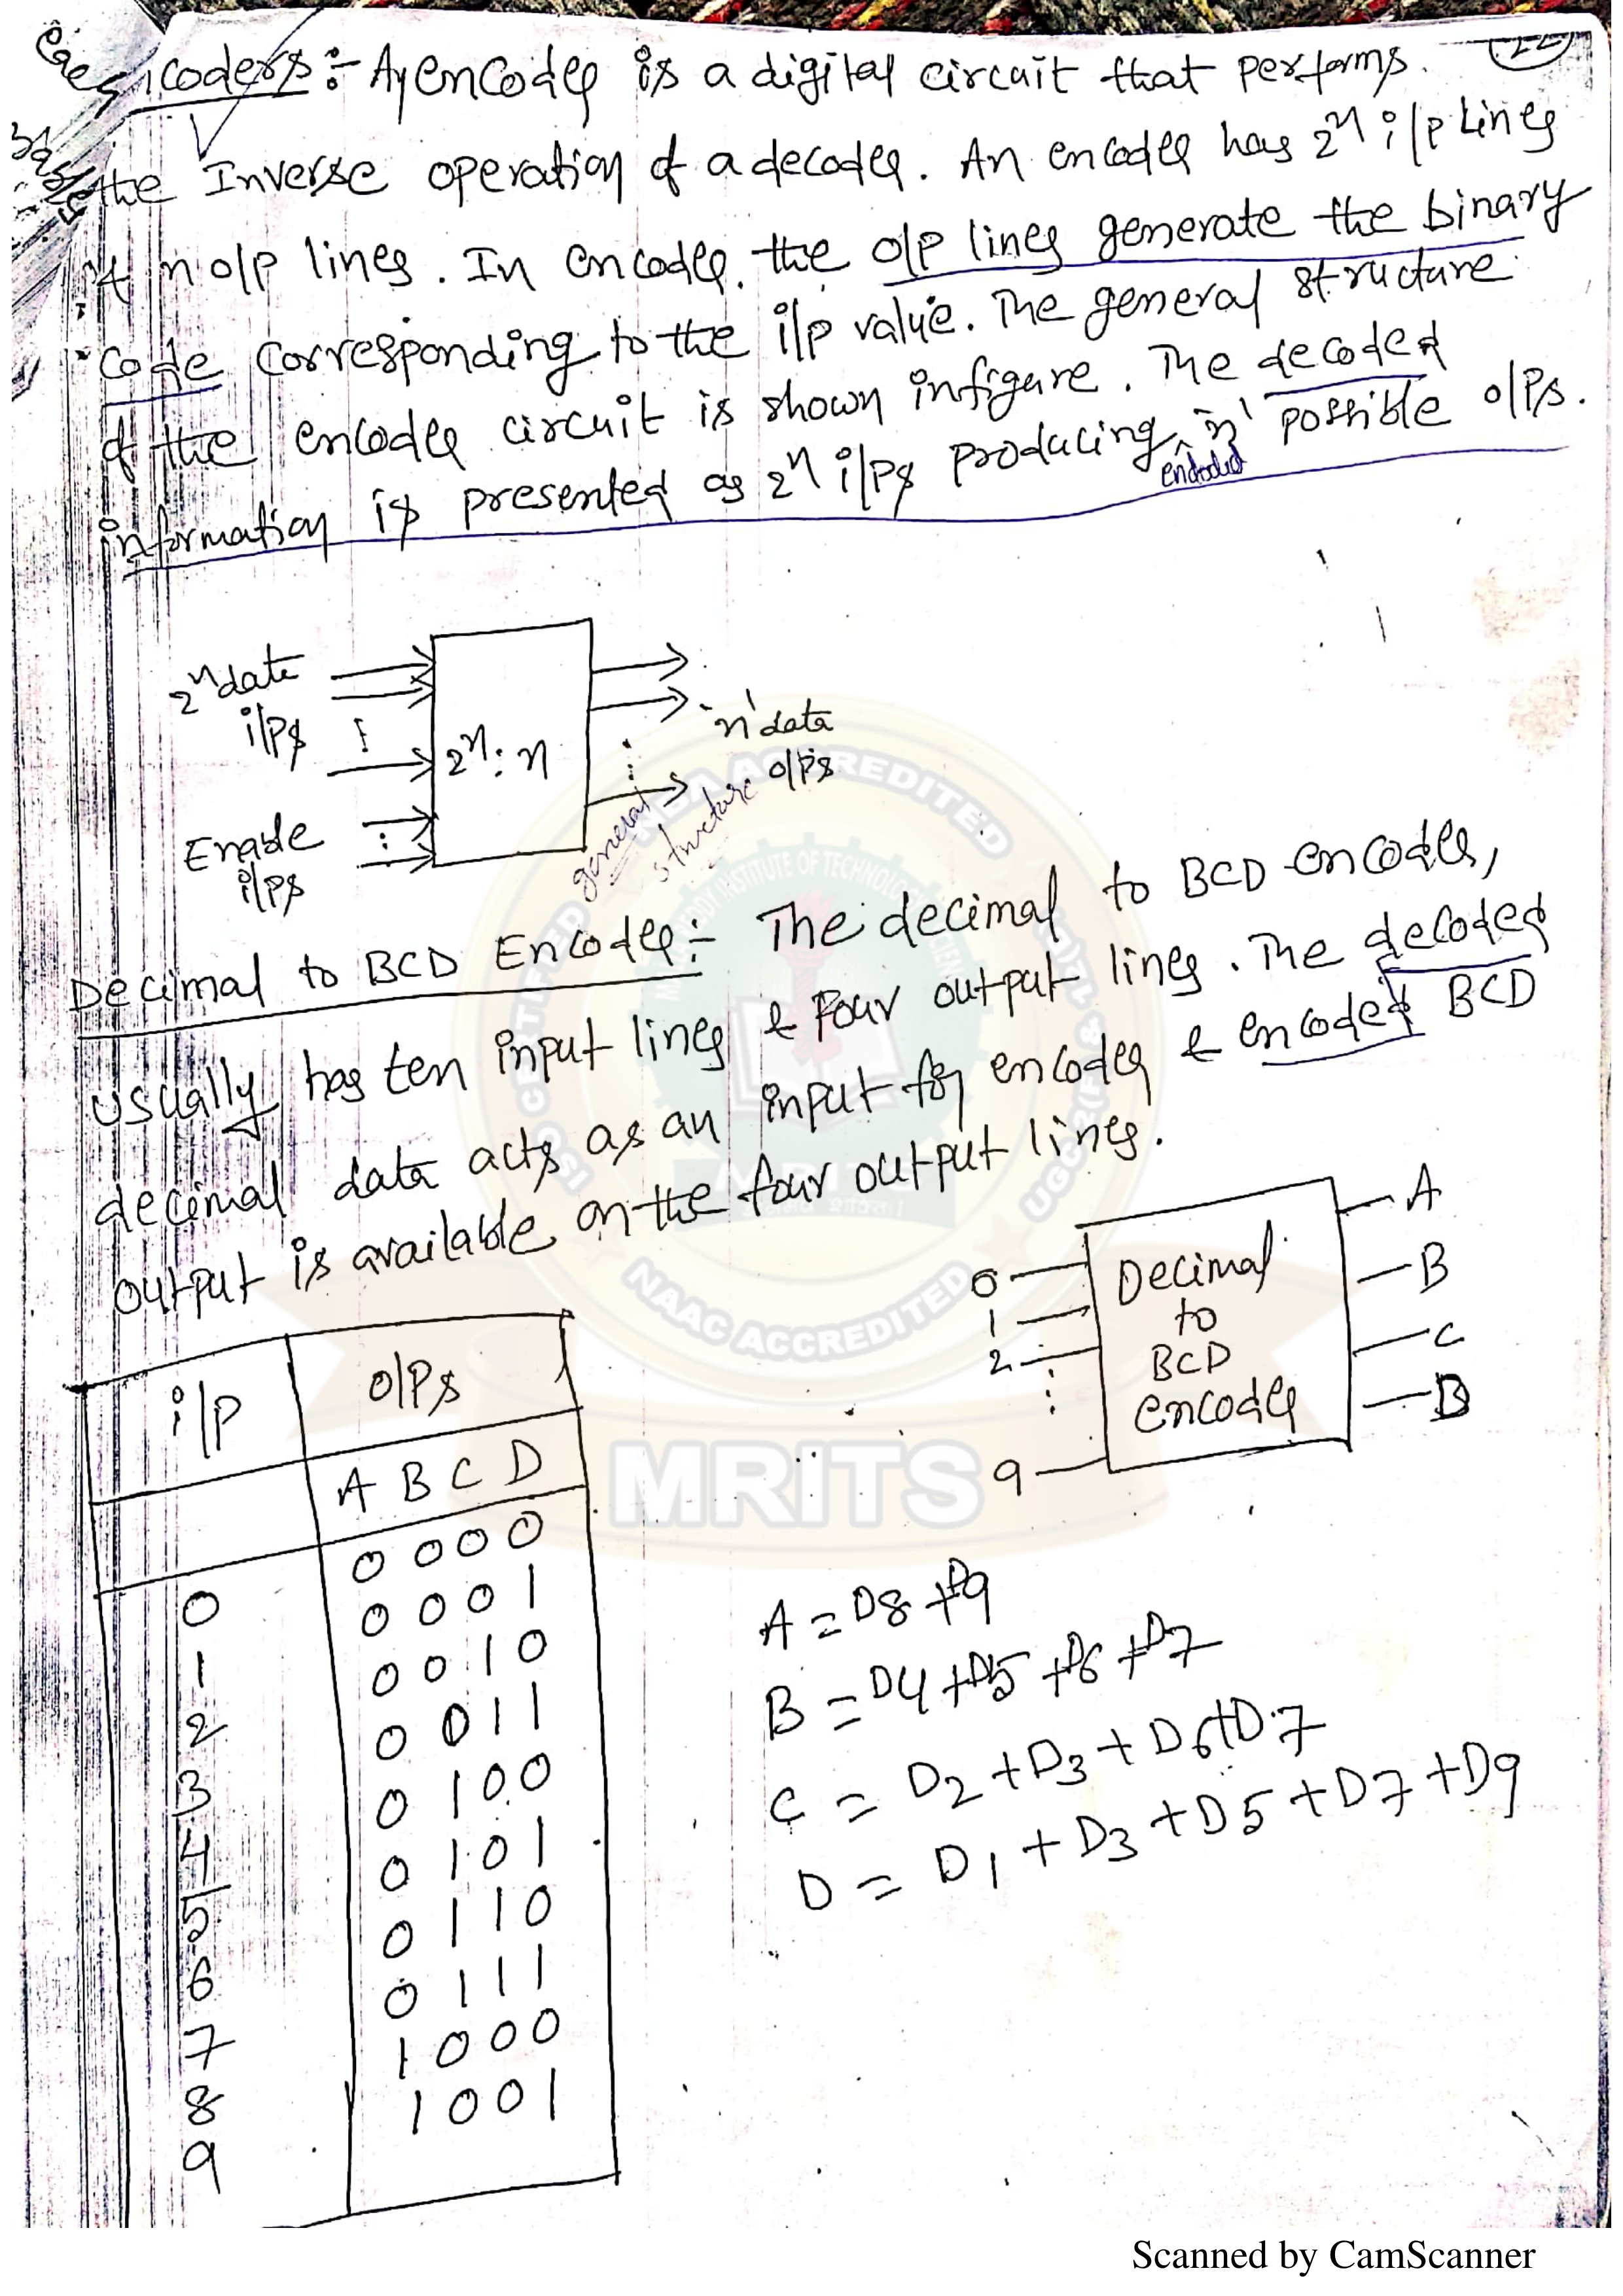 Encoders :- An encoder is a digital circuit that performs.
the Inverse operation of a decoder. An encoder has 2^n i/p lines
& n o/p lines. In encoder, the o/p lines generate the binary
code corresponding to the i/p value. The general structure
of the encoder circuit is shown in figure. The decoded
information is presented as 2^n i/ps producing 'n' possible o/ps.
encoded
2^n date
i/ps
2^n : n
'n' data
o/ps
Enable
i/ps
general
structure
Decimal to BCD Encoder :- The decimal to BCD encoder,
usually has ten input lines & four output lines. The decoded
decimal data acts as an input for encoder & encoded BCD
output is available on the four output lines.
0
1
2
9
Decimal
to
BCD
encoder
A
B
C
D
i/p o/ps
A B C D
0 0 0 0 0
1 0 0 0 1
2 0 0 1 0
3 0 0 1 1
4 0 1 0 0
5 0 1 0 1
6 0 1 1 0
7 0 1 1 1
8 1 0 0 0
9 1 0 0 1
A = D8 + D9
B = D4 + D5 + D6 + D7
C = D2 + D3 + D6 + D7
D = D1 + D3 + D5 + D7 + D9
NAAC ACCREDITED
MRITS
Scanned by CamScanner